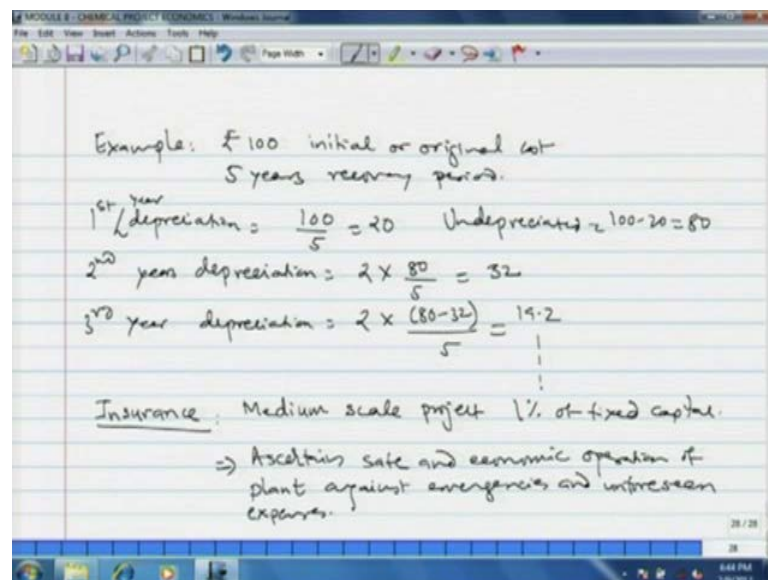 MODULE 8 - CHEMICAL PROJECT ECONOMICS - Windows Journal
File Edit View Insert Actions Tools Help
Page Width
Example: ₤ 100 initial or original cost
5 years recovery period.
1st year depreciation = 100/5 = 20 Undepreciated = 100-20 = 80
2nd years depreciation = 2 × 80/5 = 32
3rd year depreciation = 2 × (80-32)/5 = 19.2
Insurance: Medium scale project 1% of fixed capital.
⇒ Ascertains safe and economic operation of
plant against emergencies and unforeseen
expenses.
28 / 28
28
6:44 PM